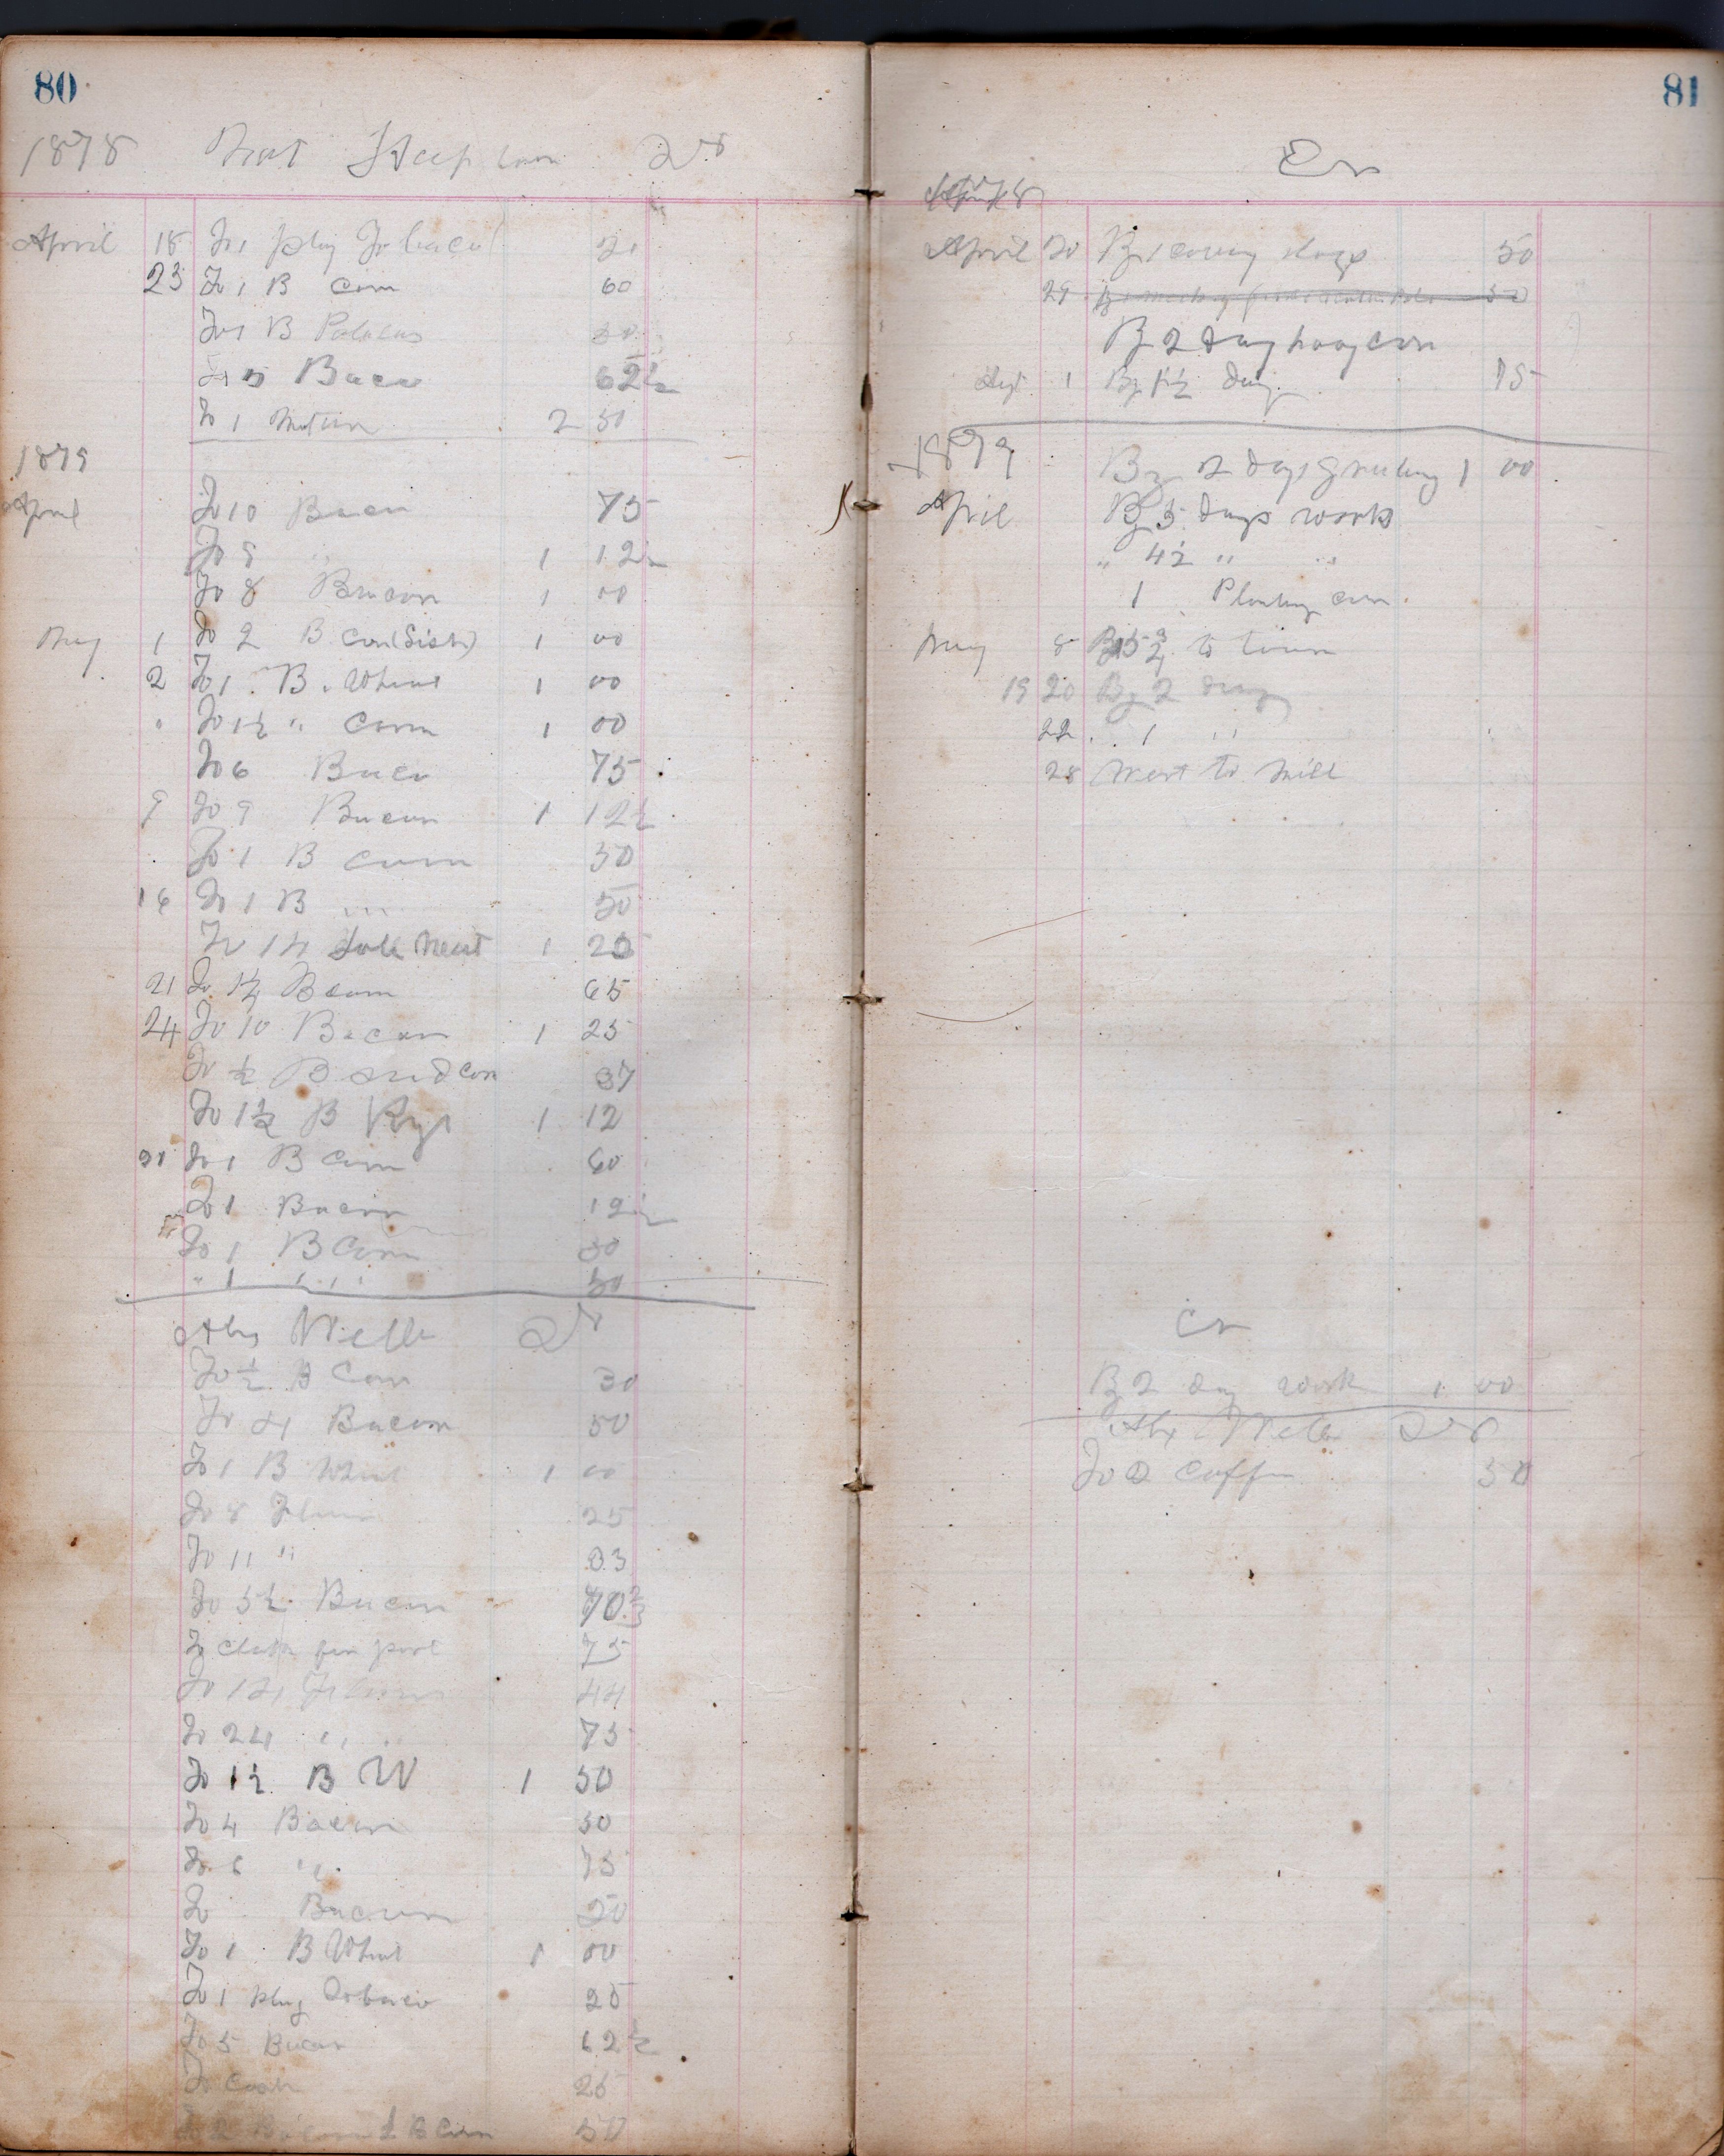 80
1878 Dr
April 18 To 1 plug Tobaco
23 To 1 B Corn 60
To 1 B
To 5 Baco 62½
To 1 Mutton 2 50
1879
April To 10 Bacon 75
To 9 " 1 12½
To 8 Bacon 1 00
May 1 To 2 B Corn 1 00
2 To 1 B. Wheat 1 00
" To 1½ " Corn 1 00
To 6 Baco 75
9 To 9 Bacon 1 12½
To 1 B Corn 50
16 To 1 B " 50
To 14 Sole Meat 1 25
21 To 1½ B Corn 65
24 To 10 Bacon 1 25
To ½ B Seed Corn 37
To 1½ B Rye 1 12
31 To 1 B Corn 60
To 1 Bacon 12½
To 1 B Corn 50
" 1 " " 50
Aby Wells Dr
To ½ B Corn 30
To 4 Bacon 50
To 1 B Wheat 1 00
To 8 Flour 25
To 11 " 33
To 5½ Bacon 70⅔
To 75
To 14 Flour 44
To 24 " 75
To 1½ B W 1 50
To 4 Bacon 50
To 6 " 75
To Bacon 50
To 1 B Wheat 1 00
To 1 plug Tobaco 25
To 5 Bacon 62½
To Cash 25
To 2 Bacon ½ B Corn 50
81
Cr
April 20 By 1 50
29 By 50
By 2 day
Sept 1 By 1½ day 75
1879 By 2 days 1 00
April By 5 days work
" 4½ " "
1 Planting corn
May 8 By to town
19 20 By 2 days
22 " 1 "
28 Went to Mill
Cr
By 2 day work 1 00
Aby Wells Dr
To 2 Coffee 50